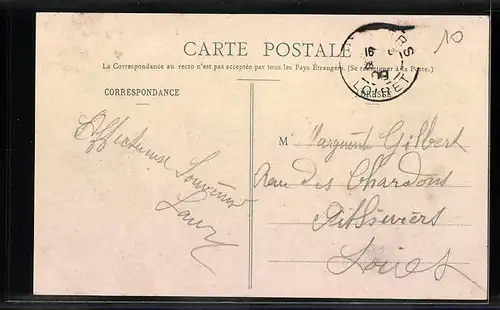 CARTE POSTALE
La Correspondance au recto n'est pas acceptée par tous les Pays Étrangers. (Se renseigner à la Poste.)
CORRESPONDANCE
ADRESSE
10
LOIRET
09
Affectueux Souvenir
M Marguerite Gilbert
Rue des Chardons
Pithiviers
Loiret